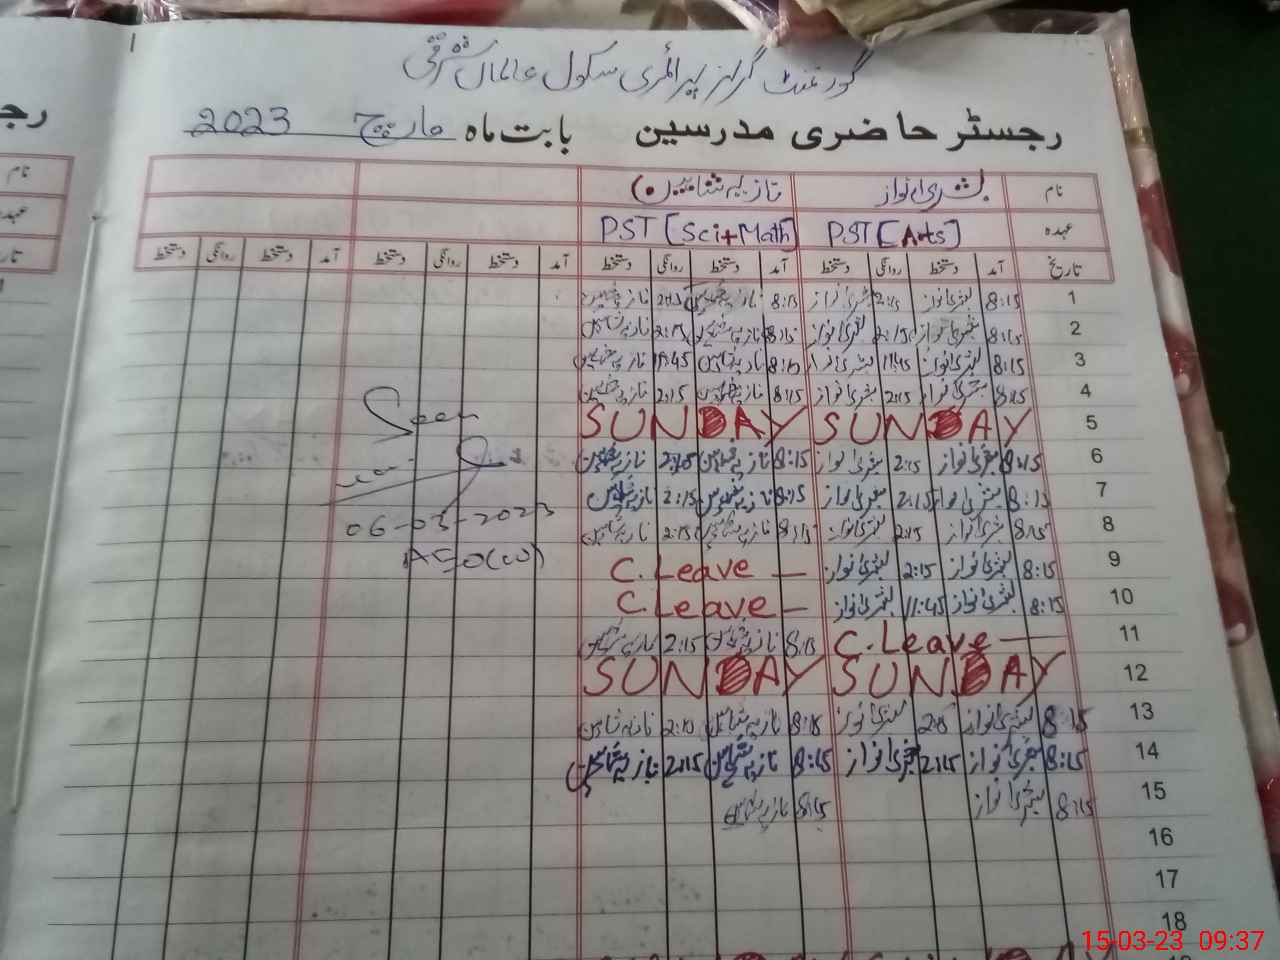 گورنمنٹ گرلز پرائمری سکول عالماں شرقی
رجسٹر حاضری مدرسین بابت ماہ مارچ 2023
نام بشریٰ نواز نازیہ شاہین
عہدہ PST [Arts] PST [Sci+Math]
تاریخ آمد دستخط روانگی دستخط آمد دستخط روانگی دستخط آمد دستخط روانگی دستخط آمد دستخط روانگی دستخط
1 8:15 بشریٰ نواز 2:15 بشریٰ نواز 8:15 نازیہ شاہین 2:15 نازیہ شاہین
2 8:15 بشریٰ نواز 2:15 بشریٰ نواز 8:15 نازیہ شاہین 2:15 نازیہ شاہین
3 8:15 بشریٰ نواز 11:45 بشریٰ نواز 8:15 نازیہ شاہین 11:45 نازیہ شاہین
4 8:15 بشریٰ نواز 2:15 بشریٰ نواز 8:15 نازیہ شاہین 2:15 نازیہ شاہین
5 SUNDAY SUNDAY
6 8:15 بشریٰ نواز 2:15 بشریٰ نواز 8:15 نازیہ شاہین 2:15 نازیہ شاہین
7 8:15 بشریٰ نواز 2:15 بشریٰ نواز 8:15 نازیہ شاہین 2:15 نازیہ شاہین
8 8:15 بشریٰ نواز 2:15 بشریٰ نواز 8:15 نازیہ شاہین 2:15 نازیہ شاہین
9 8:15 بشریٰ نواز 2:15 بشریٰ نواز C.Leave —
10 8:15 بشریٰ نواز 11:45 بشریٰ نواز C.Leave —
11 C.Leave — 8:15 نازیہ شاہین 2:15 نازیہ شاہین
12 SUNDAY SUNDAY
13 8:15 بشریٰ نواز 2:15 بشریٰ نواز 8:15 نازیہ شاہین 2:15 نازیہ شاہین
14 8:15 بشریٰ نواز 2:15 بشریٰ نواز 8:15 نازیہ شاہین 2:15 نازیہ شاہین
15 8:15 بشریٰ نواز 8:15 نازیہ شاہین
16
17
18
Seen
06-03-2023
AEO(W)
نام
15-03-23 09:37